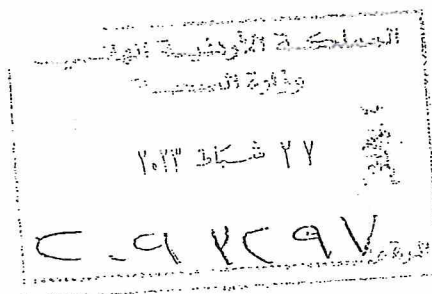 المملكة الأردنية الهاشمية
وزارة الصحة
٢٧ شباط ٢٠٢٣
الرقم ٢٠٩٢٢٩٧